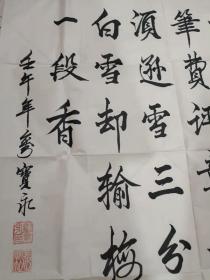 筆費評
須遜雪三分
白雪却輸梅
一段香
壬午年萬寶永